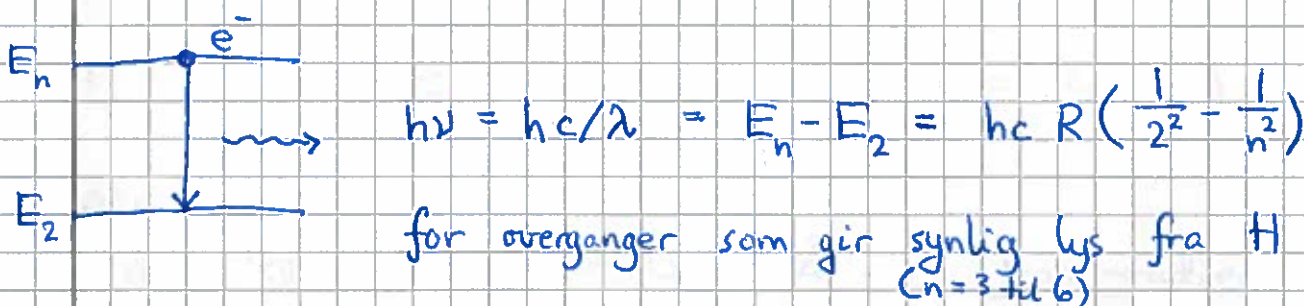 e⁻
Eₙ
hν = hc/λ = Eₙ - E₂ = hc R (1/2² - 1/n²)
E₂
for overganger som gir synlig lys fra H
(n = 3 til 6)